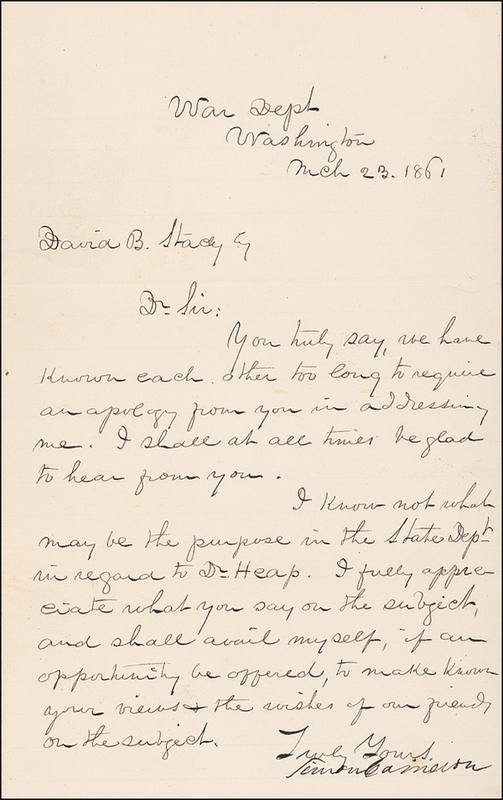 War Dept
Washington
Mch 23. 1861
David B. Stacy Esq
Dr Sir:
You truly say, we have
known each other too long to require
an apology from you in addressing
me. I shall at all times be glad
to hear from you.
I know not what
may be the purpose in the State Dept
in regard to Dr Heap. I fully appre-
ciate what you say on the subject,
and shall avail myself, if an
opportunity be offered, to make known
your views & the wishes of our friends
on the subject.
Truly Yours
Simon Cameron